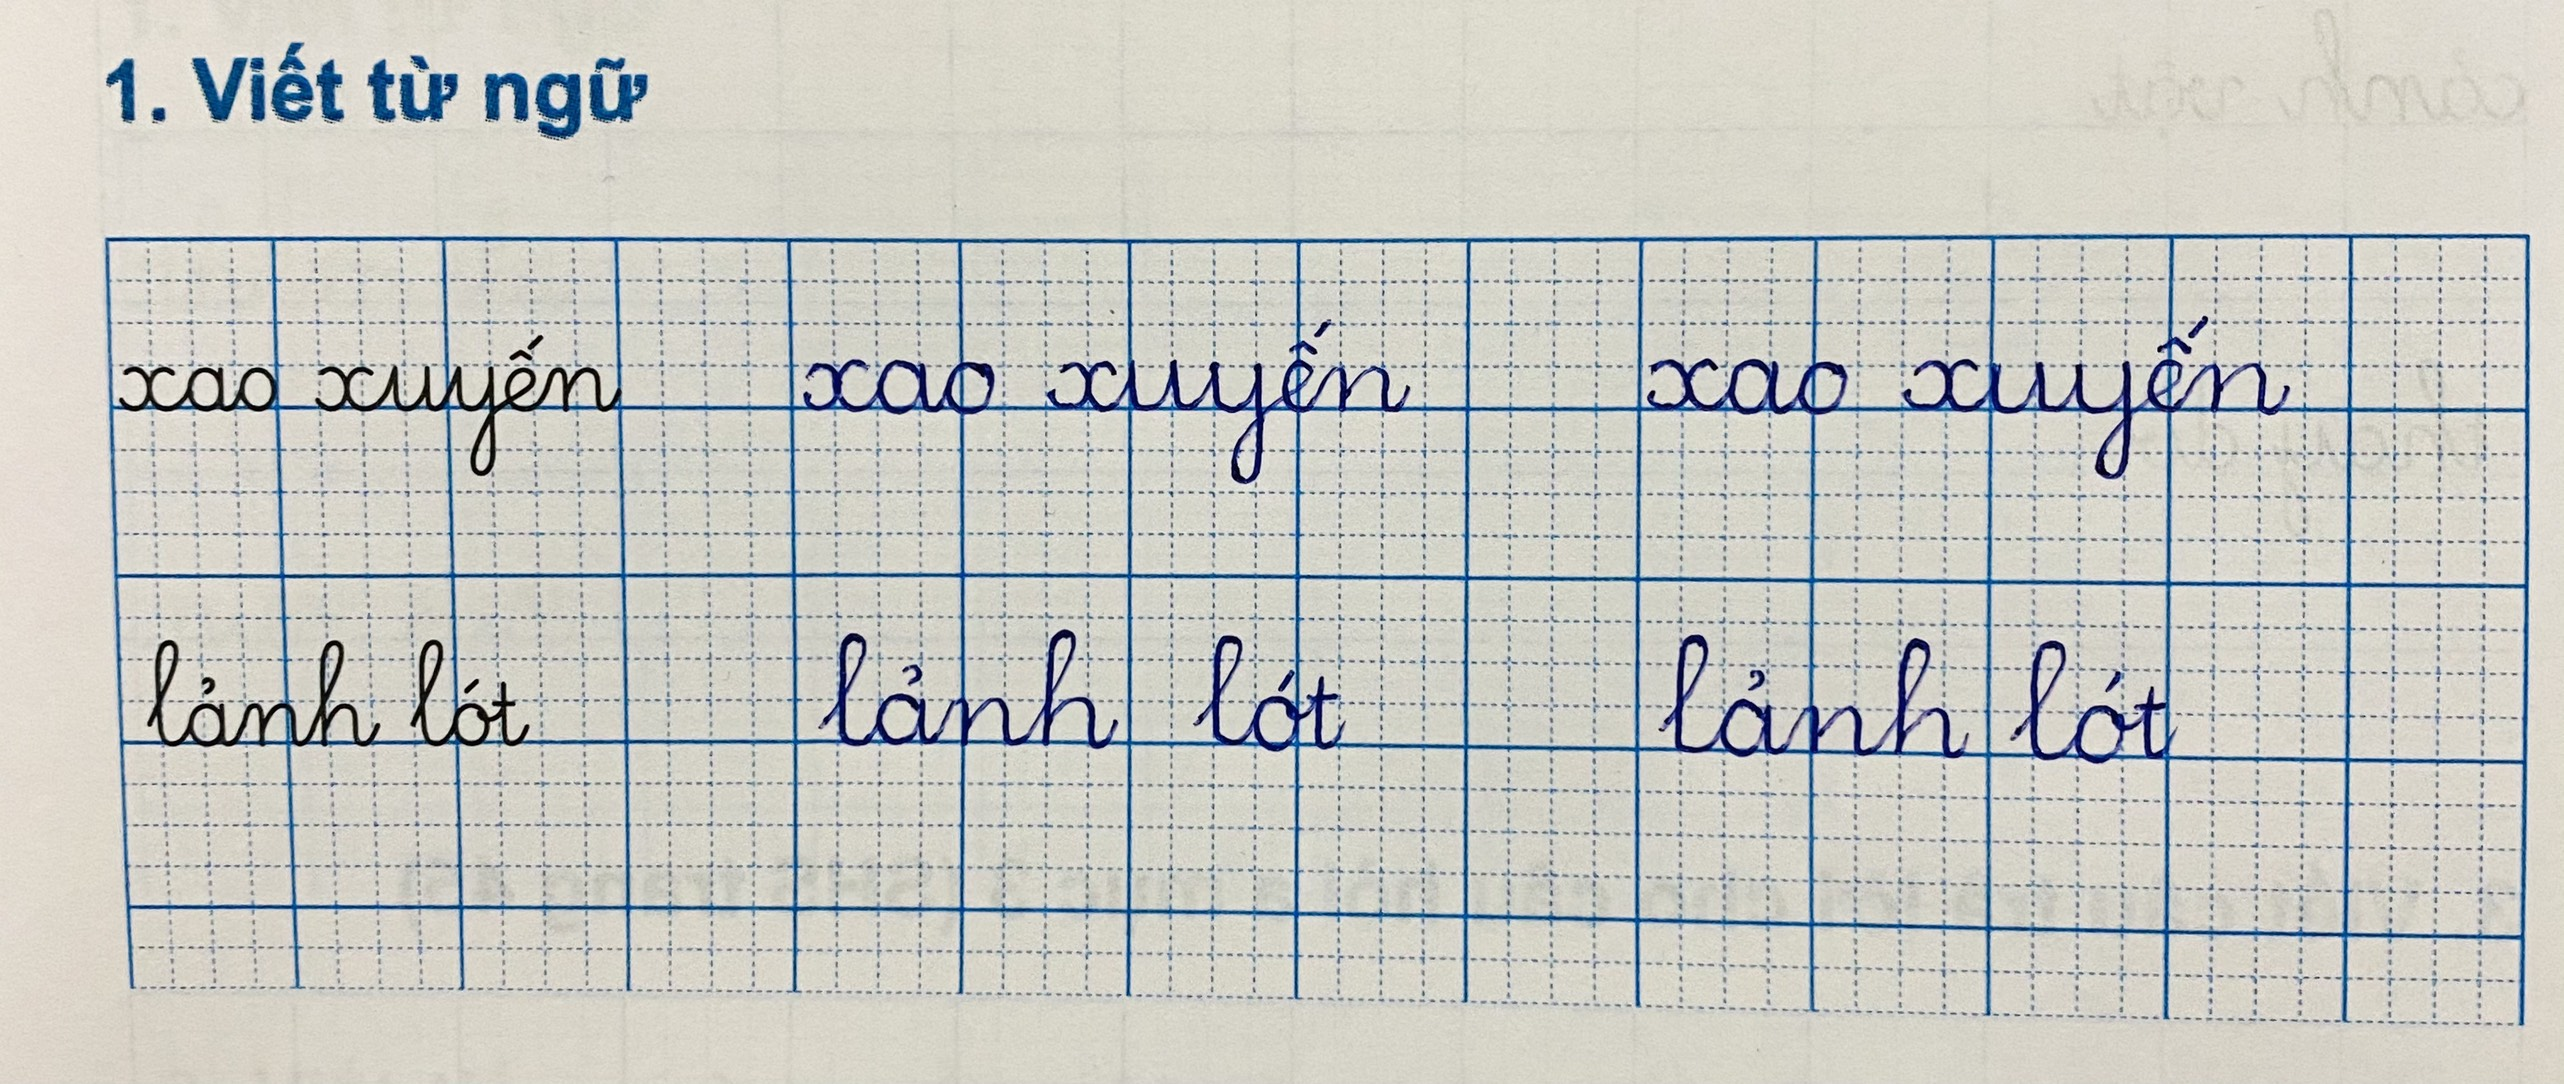 1. Viết từ ngữ
xao xuyến xao xuyến xao xuyến
lảnh lót lảnh lót lảnh lót